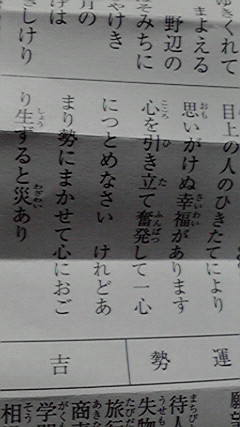 ゆきくれて
まよえる
野辺の
そみちに
やけき
月の
げは
さしけり
目上の人のひきたてにより
思いがけぬ幸福があります
心を引き立て奮発して一心
につとめなさい けれどあ
まり勢にまかせて心におご
り生ずると災あり
運
勢
吉
願望
待人
失物
旅行
商売
学問
相